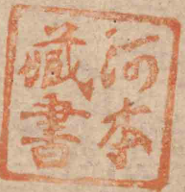 河本
藏書